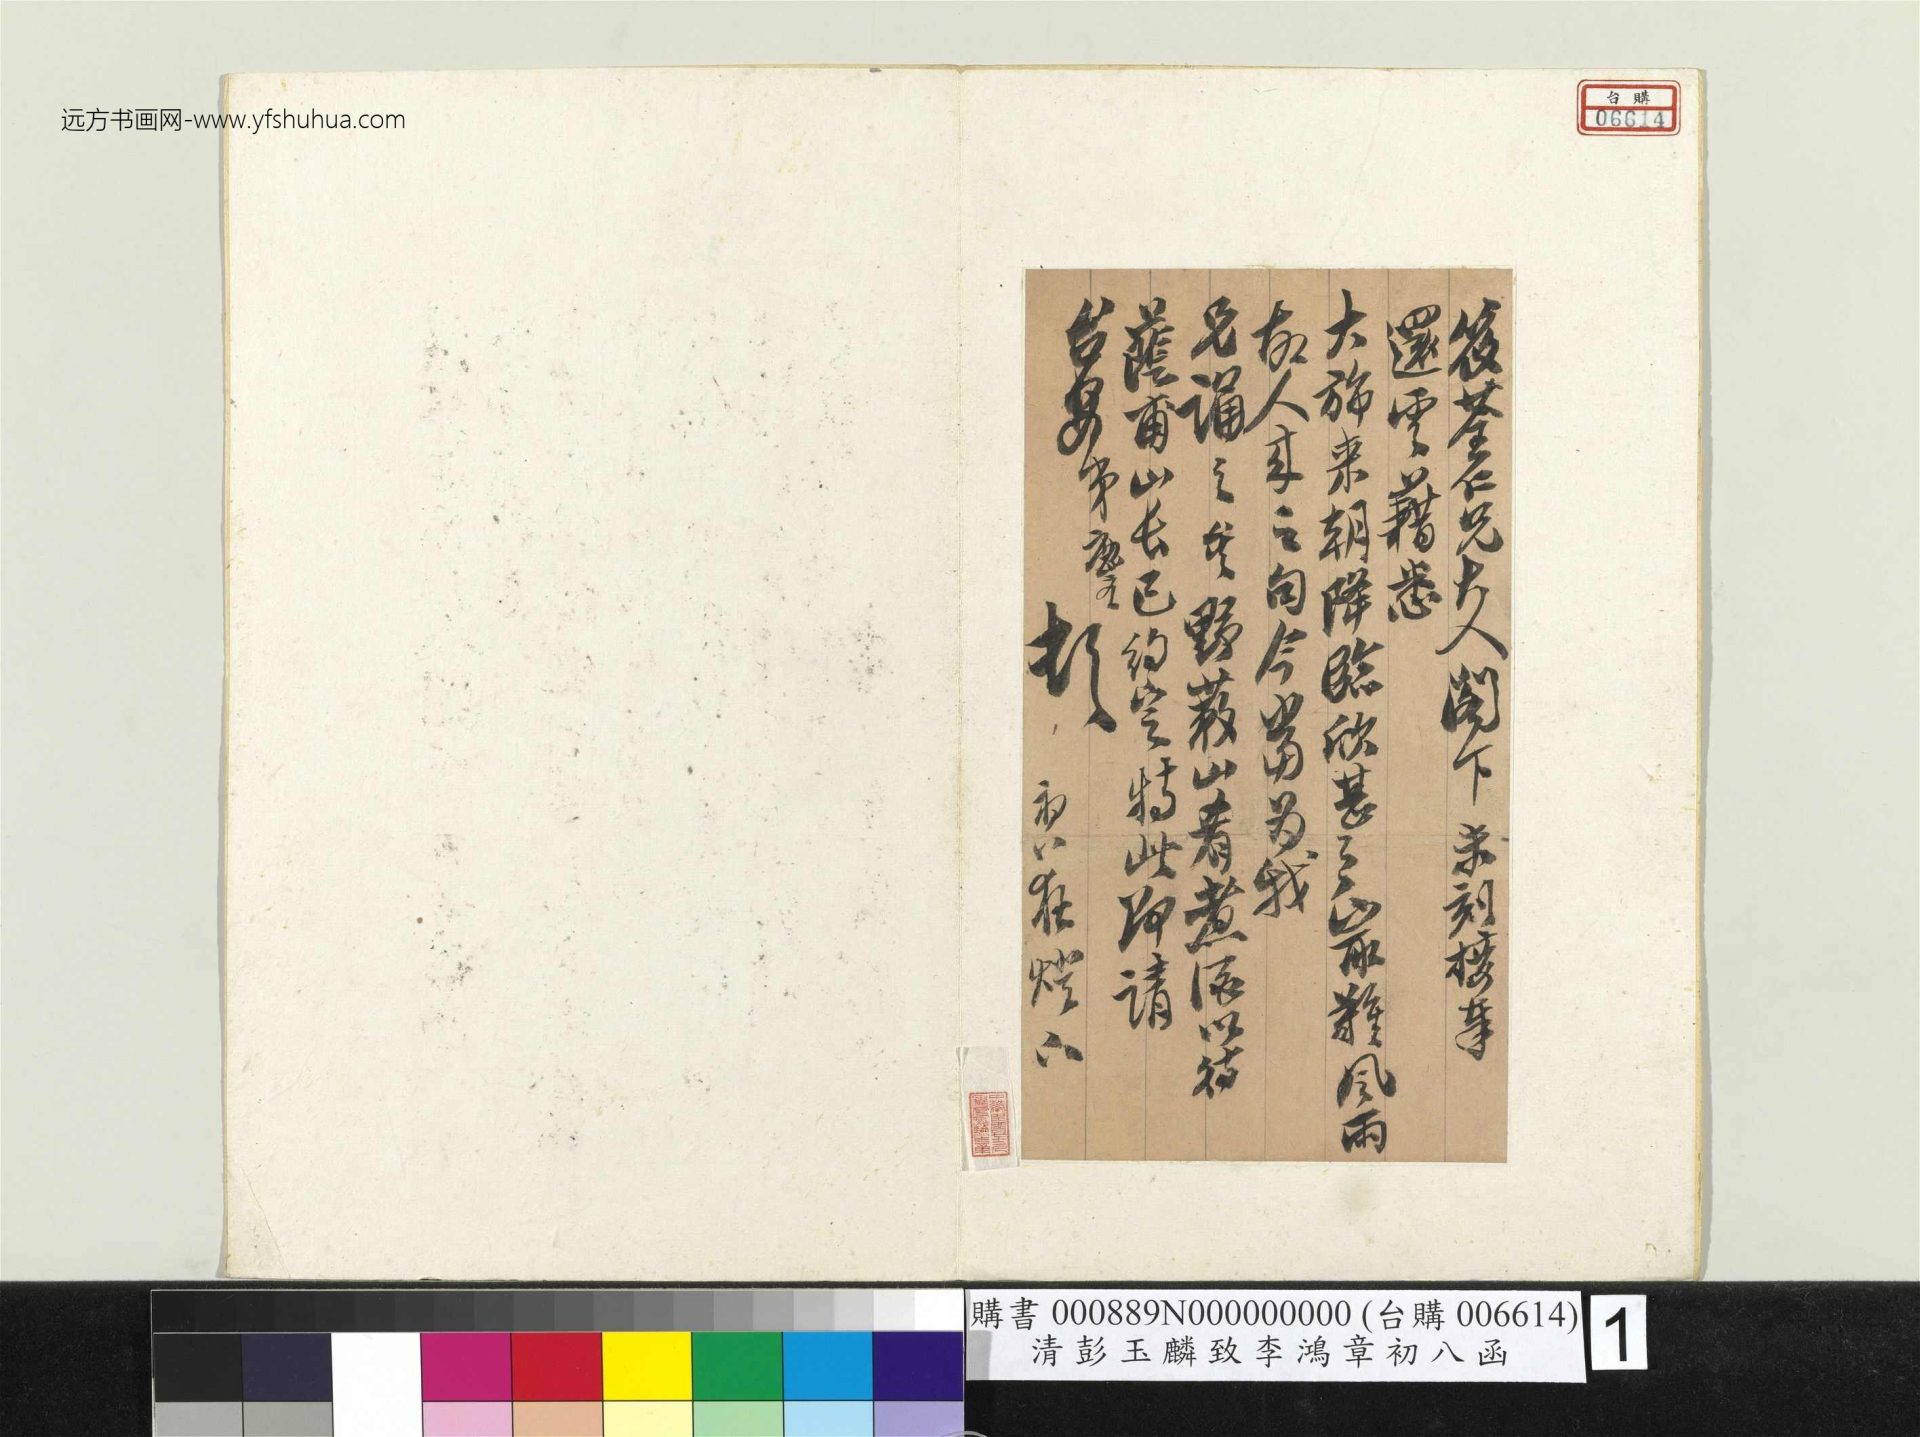 远方书画网-www.yfshuhua.com
台購
06614
筱荃仁兄大人閣下 頃刻接奉
還雲藉悉
大旆來朝降臨欣甚之最難風雨
故人來之句今當為我
兄誦之矣野蔌山肴煮酒以待
蔭甫山長已約定特此即請
台安弟麐 頓
初八夜燈下
購書 000889N000000000 (台購 006614)
清彭玉麟致李鴻章初八函
1